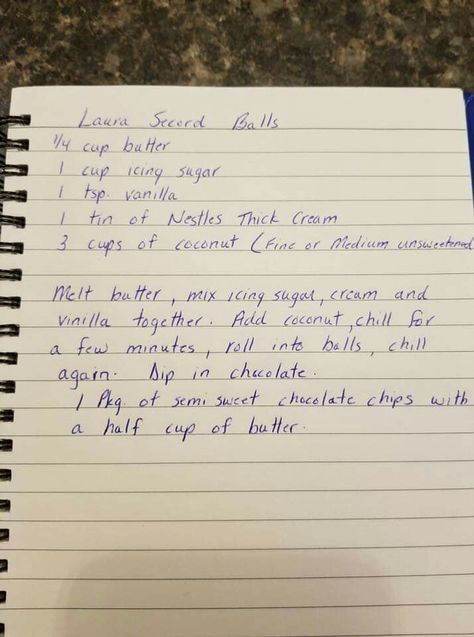 Laura Secord Balls
1/4 cup butter
1 cup icing sugar
1 tsp. vanilla
1 tin of Nestles Thick Cream
3 cups of coconut (Fine or Medium unsweetened
Melt butter, mix icing sugar, cream and
vinilla together. Add coconut, chill for
a few minutes, roll into balls, chill
again. Dip in chocolate.
1 Pkg. of semi sweet chocolate chips with
a half cup of butter.